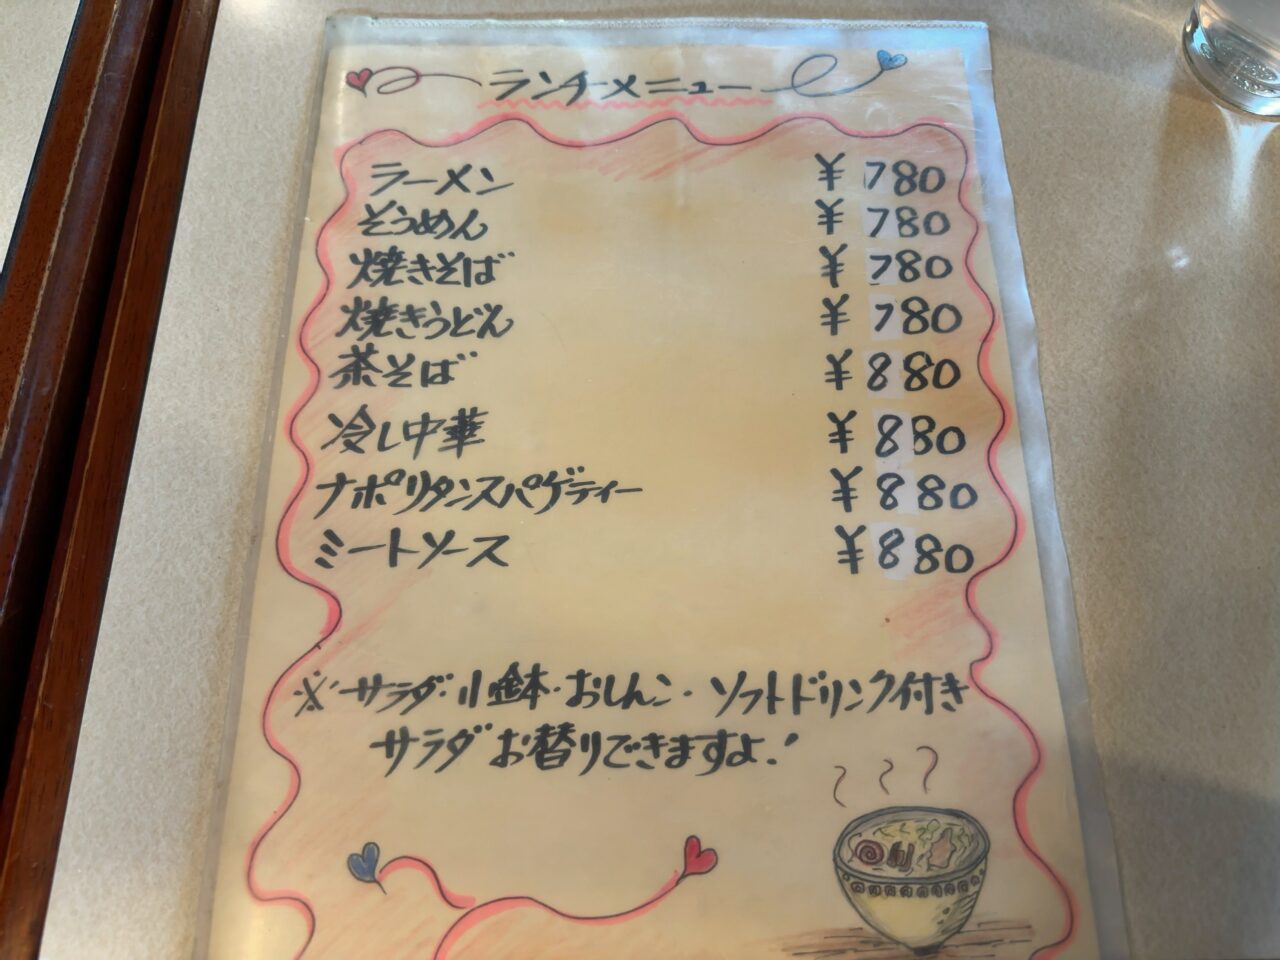 ランチメニュー
ラーメン ¥780
そうめん ¥780
焼きそば ¥780
焼きうどん ¥780
茶そば ¥880
冷し中華 ¥880
ナポリタンスパゲティー ¥880
ミートソース ¥880
※サラダ・小鉢・おしんこ・ソフトドリンク付き
サラダお替りできますよ!